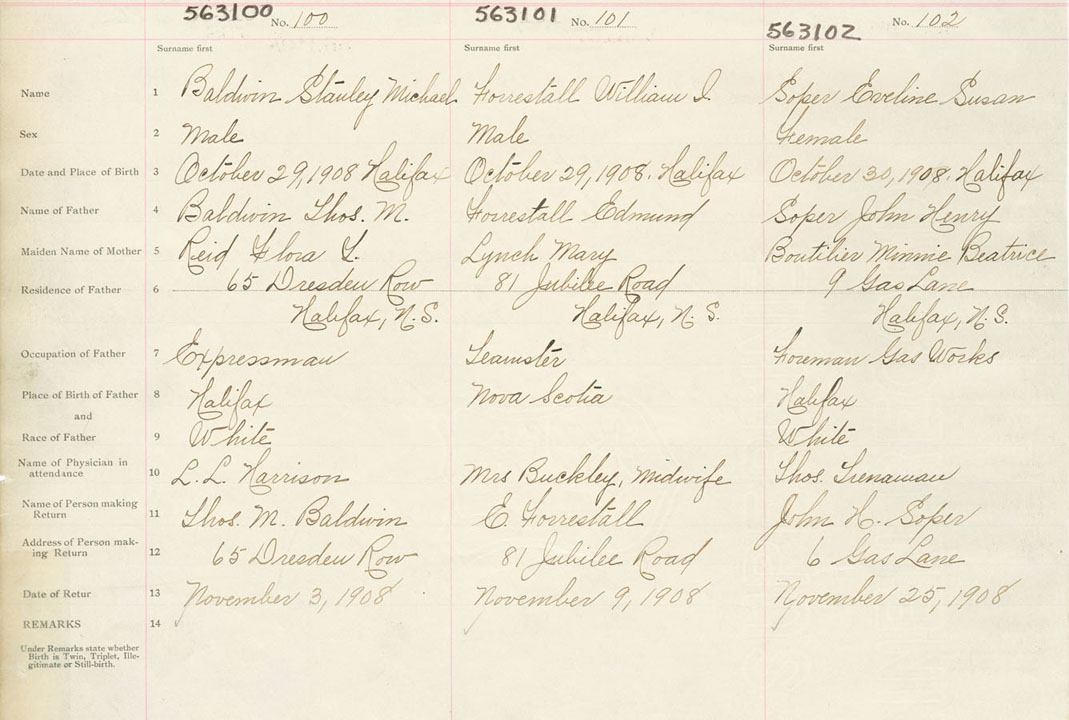 563100 No. 100 563101 No. 101 563102 No. 102
Surname first Surname first Surname first
Name 1 Baldwin Stanley Michael Forrestall William J. Soper Eveline Susan
Sex 2 Male Male Female
Date and Place of Birth 3 October 29, 1908 Halifax October 29, 1908. Halifax October 30, 1908. Halifax
Name of Father 4 Baldwin Thos. M. Forrestall Edmund Soper John Henry
Maiden Name of Mother 5 Reid Flora Lynch Mary Boutilier Minnie Beatrice
Residence of Father 6 65 Dresden Row 81 Jubilee Road 9 Gas Lane
Halifax, N.S. Halifax, N.S. Halifax, N.S.
Occupation of Father 7 Expressman Teamster Foreman Gas Works
Place of Birth of Father 8 Halifax Nova Scotia Halifax
and
Race of Father 9 White White
Name of Physician in
attendance 10 L. L. Harrison Mrs Buckley, Midwife Thos. Trenaman
Name of Person making
Return 11 Thos. M. Baldwin E. Forrestall John H. Soper
Address of Person mak-
ing Return 12 65 Dresden Row 81 Jubilee Road 6 Gas Lane
Date of Retur 13 November 3, 1908 November 9, 1908 November 25, 1908
REMARKS 14
Under Remarks state whether
Birth is Twin, Triplet, Ille-
gitimate or Still-birth.